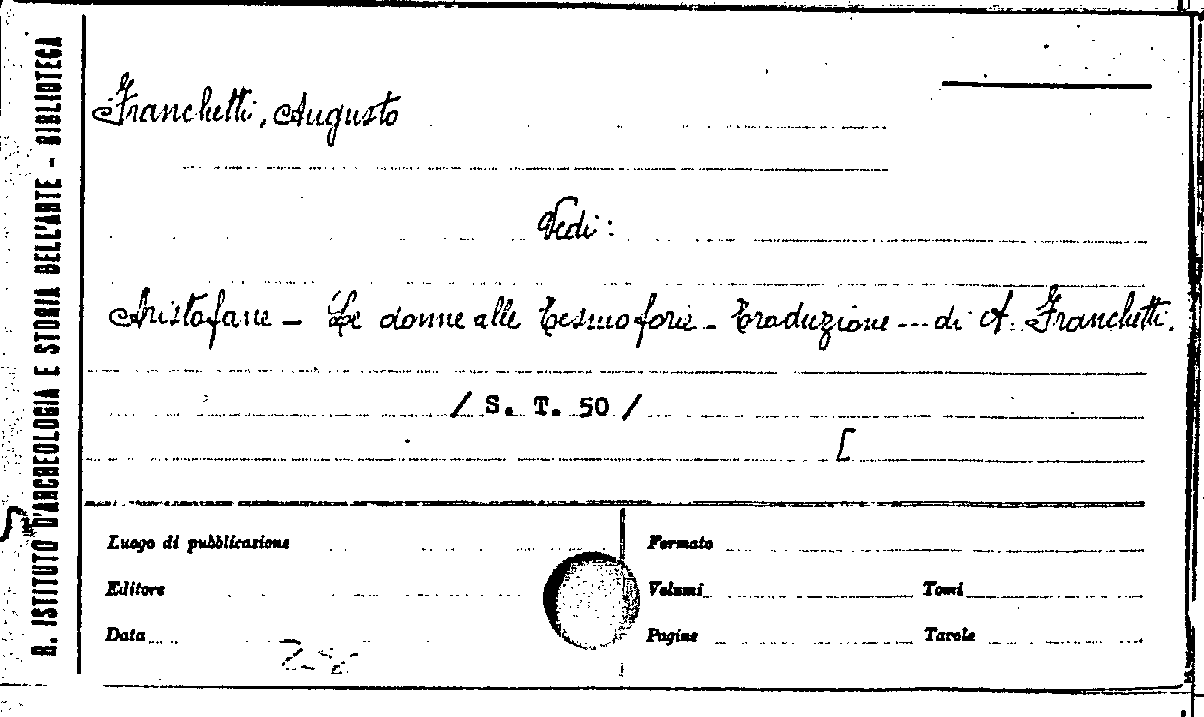 R. ISTITUTO D'ARCHEOLOGIA E STORIA DELL'ARTE - BIBLIOTECA
Franchetti, Augusto
Vedi:
Aristofane - Le donne alle Tesmoforie - Traduzione --- di A. Franchetti.
/ S. T. 50 /
[
Luogo di pubblicazione
Formato
Editore
Volumi
Tomi
Data
Pagine
Tavole